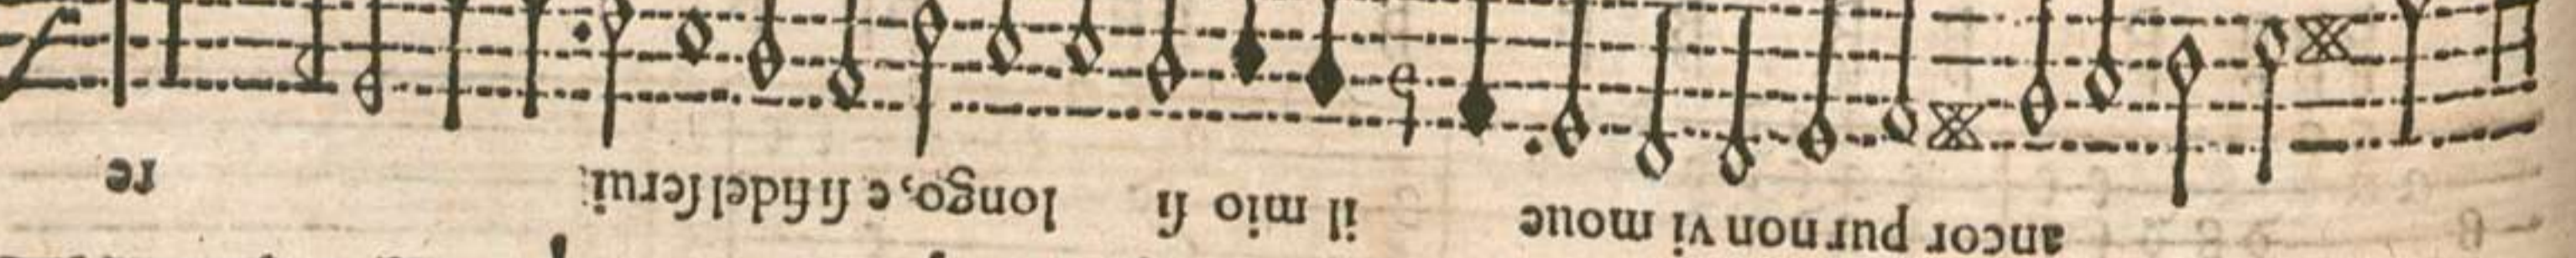 ancor pur non vi moue il mio ſi longo, e ſi fidel ſerui re